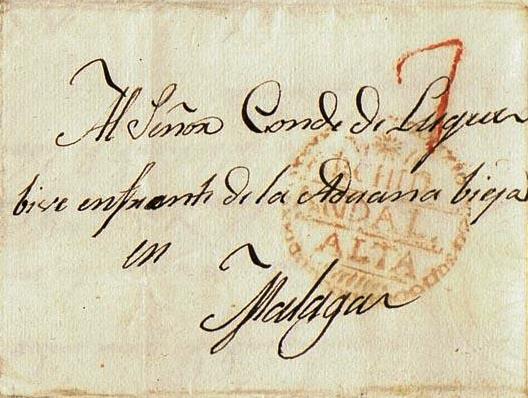 7
Al Señor Conde de Luque
bive enfrente de la Aduana bieja
en
Malaga
NDAL.
ALTA